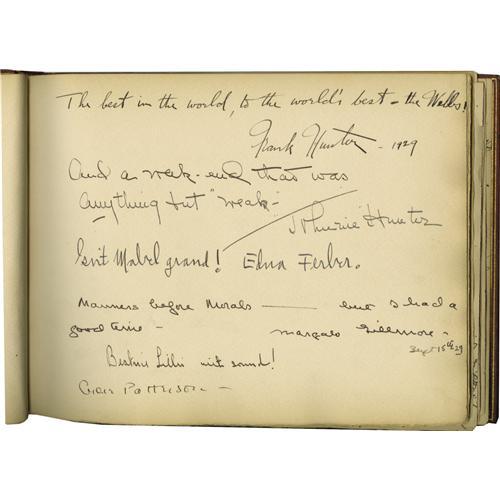 The best in the world, to the world's best - the Wells!
Frank Hunter - 1929
And a week-end that was
anything but "weak" -
Hunter
Isn't Mabel grand! Edna Ferber.
Manners before Morals —— but I had a
good time - Margalo Gillmore -
Sept 15th 29
Beatrice Lillie with sound!